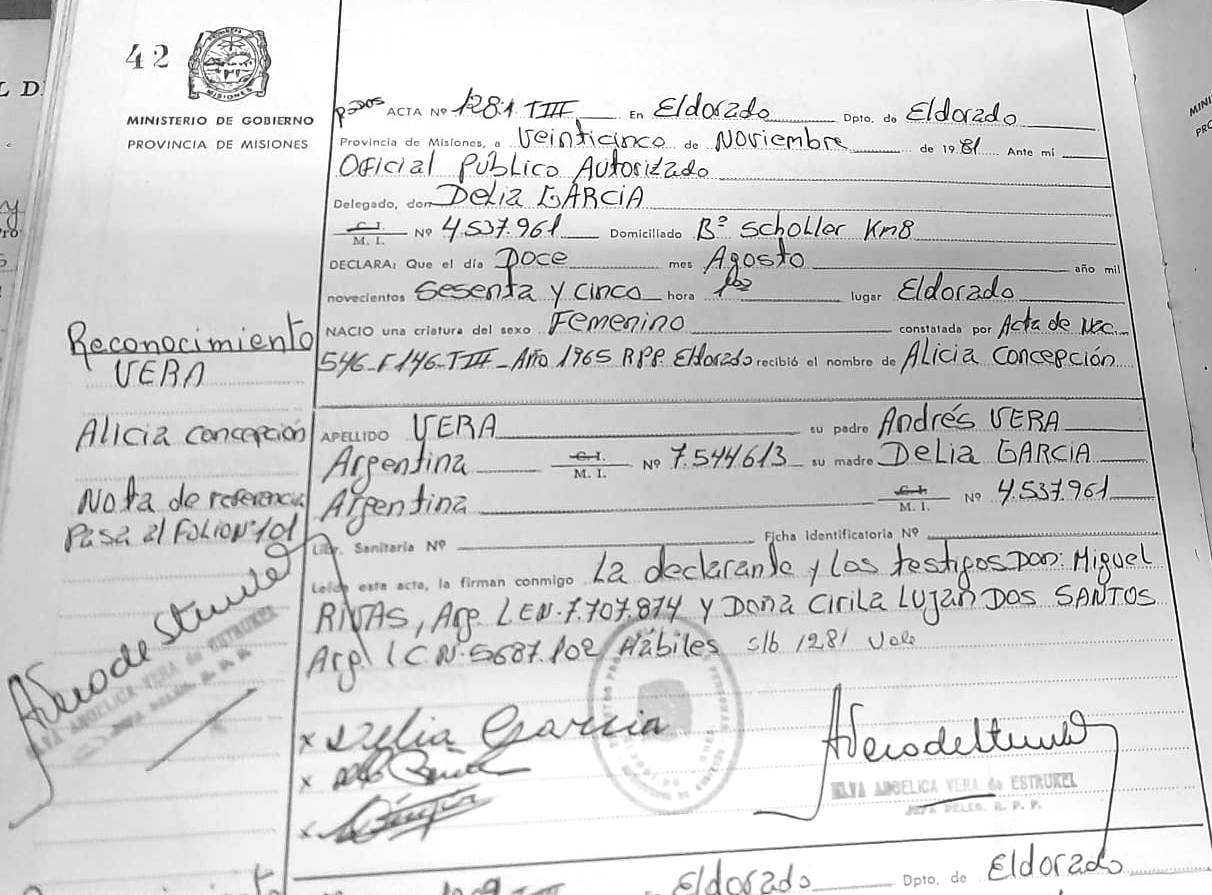 42
L D
MISIONES
MINISTERIO DE GOBIERNO
PROVINCIA DE MISIONES
ACTA Nº 1281 TIII En Eldorado Dpto. de Eldorado
Provincia de Misiones, a Veinticinco de Noviembre de 1981 Ante mi
Oficial Público Autorizado
Delegado, don Delia GARCIA
C. I.
M. I. Nº 4.537.961 Domiciliado Bº Scholler Km8
DECLARA: Que el día Doce mes Agosto año mil
novecientos Sesenta y cinco hora lugar Eldorado
NACIO una criatura del sexo Femenino constatada por Acta de Nac.
546-F146-TIII-Año 1965 RPP. Eldorado recibió el nombre de Alicia Concepción
APELLIDO VERA su padre Andrés VERA
Argentina C. I. M. I. Nº 7.544.613 su madre Delia GARCIA
Argentina C. I. M. I. Nº 4.537.961
Libr. Sanitaria Nº Ficha Identificatoria Nº
Leída esta acta, la firman conmigo La declarante y los testigos Don: Miguel
RIVAS, Arg. LEN. 7.707.874 y Doña Cirila Luján DOS SANTOS
Arg. LC N. 5687.102 Hábiles s/b 1281 Vale
Reconocimiento
VERA
Alicia Concepción
Nota de referencia
Pasa al Folio Nº 101
AVera de Estrukel
ELVA ANGELICA VERA de ESTRUKEL
JEFA DELEG. R. P. P.
x Delia Garcia
x
x
AVera de Estrukel
ELVA ANGELICA VERA de ESTRUKEL
JEFA DELEG. R. P. P.
Eldorado Dpto. de Eldorado